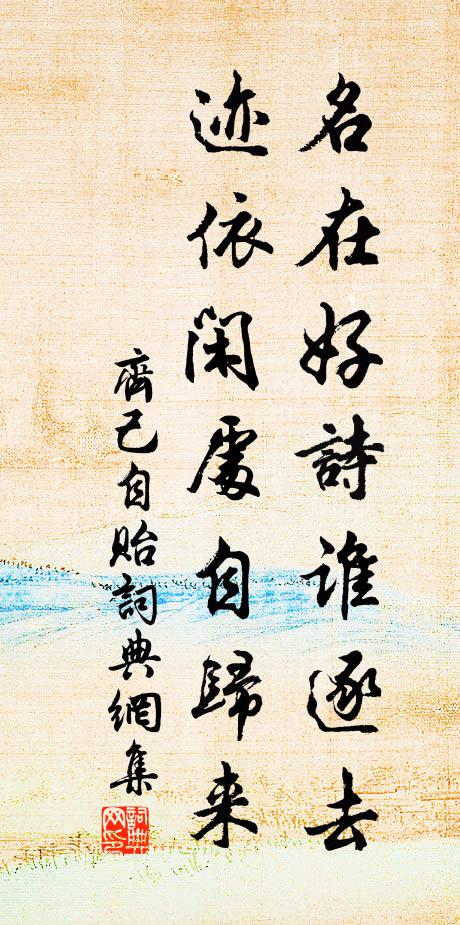 名在好詩誰逐去
迹依閑處自歸来
齊己自貽詞典網集
詞典网印